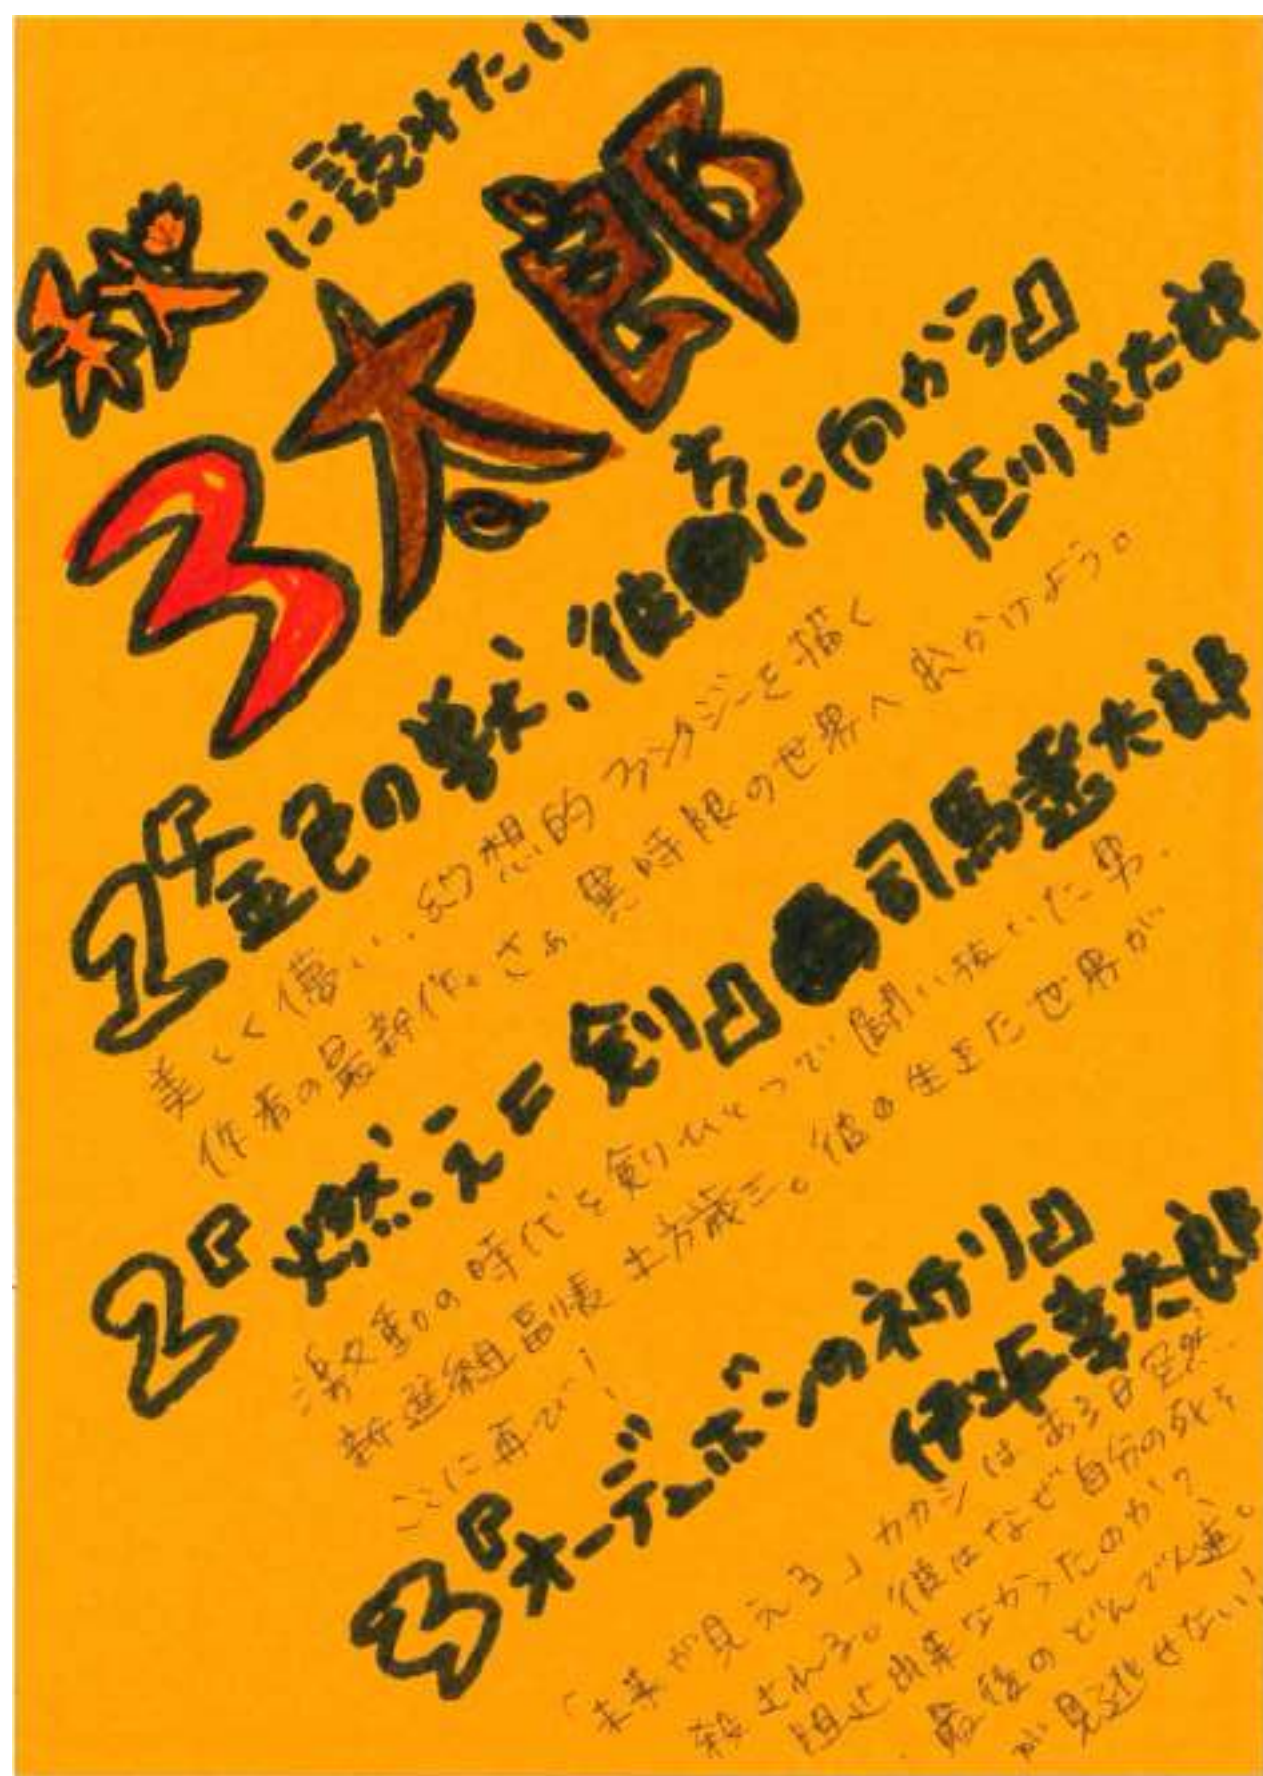 秋に読みたい
3太郎
1『金色の獣、彼方に向かう』
恒川光太郎
美しく儚い、幻想的ファンタジーを描く
作者の最新作。さぁ、異時限の世界へ出かけよう。
2『燃えよ剣』司馬遼太郎
激動の時代を剣ひとつで闘い抜いた男、
新選組副長 土方歳三。彼の生きた世界が
ここに再び!
3『オーデュボンの祈り』
伊坂幸太郎
「未来が見える」カカシはある日突然、
殺される。彼はなぜ自分の死を
阻止出来なかったのか?
最後のどんでん返し
が見逃せない!